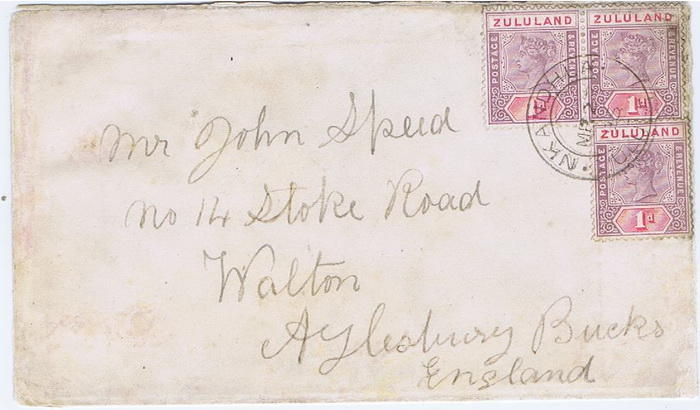 ZULULAND
POSTAGE
& REVENUE
ZULULAND
POSTAGE
& REVENUE
1d
NKANDHLA
ZULULAND
POSTAGE
& REVENUE
1d
Mr John Speed
No 14 Stoke Road
Walton
Aylesbury Bucks
England